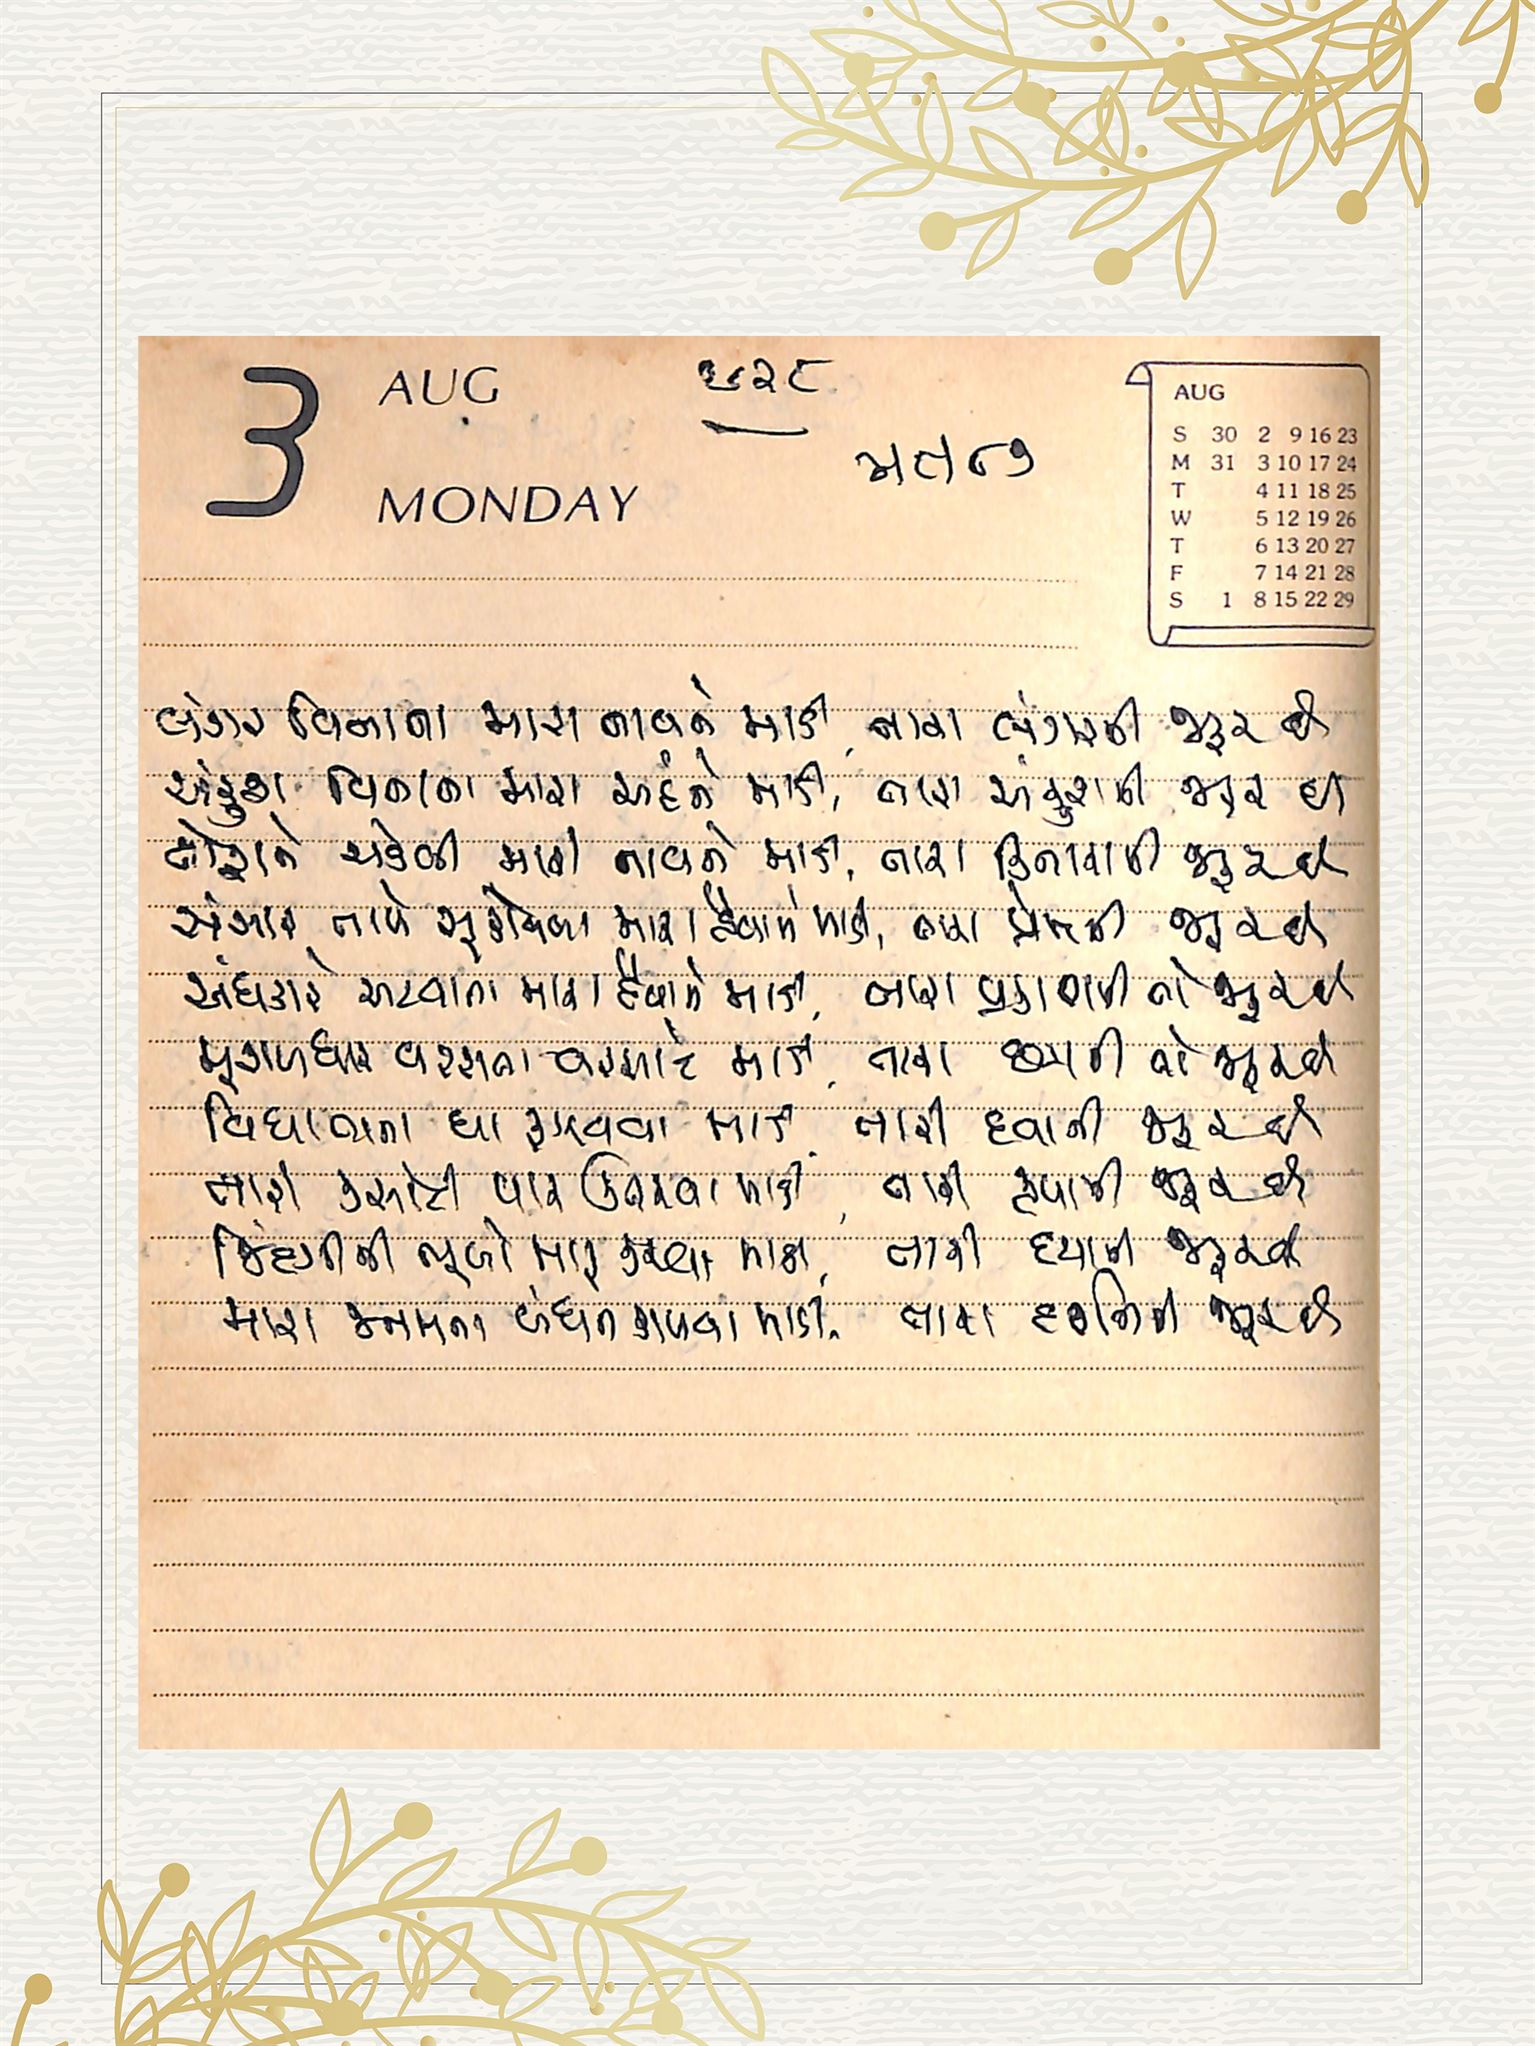 3 AUG
MONDAY
AUG
S 30 2 9 16 23
M 31 3 10 17 24
T 4 11 18 25
W 5 12 19 26
T 6 13 20 27
F 7 14 21 28
S 1 8 15 22 29
લંગર વિનાના મારા નાવને માડી, તારા લંગરની જરૂર છે
અંકુશ વિનાના મારા અહંને માડી, તારા અંકુશની જરૂર છે
તોફાને ચડેલી મારી નાવને માડી, તારા કિનારાની જરૂર છે
સંસાર તાપે મારા હૈયાને માડી, તારા પ્રેમની જરૂર છે
અંધકારે અટવાતા મારા હૈયાને માડી, તારા પ્રકાશની તો જરૂર છે
મૂશળધાર વરસતા વરસાદે માડી, તારા છત્રની તો જરૂર છે
વિશ્વાસના ઘા રૂઝવવા માડી, તારી દવાની જરૂર છે
તારી કસોટી પાર ઉતરવા માડી, તારી કૃપાની જરૂર છે
જિંદગીની ભૂલો માફ કરવા માડી, તારી દયાની જરૂર છે
મારા જનમના બંધન કાપવા માડી, તારા દર્શનની જરૂર છે